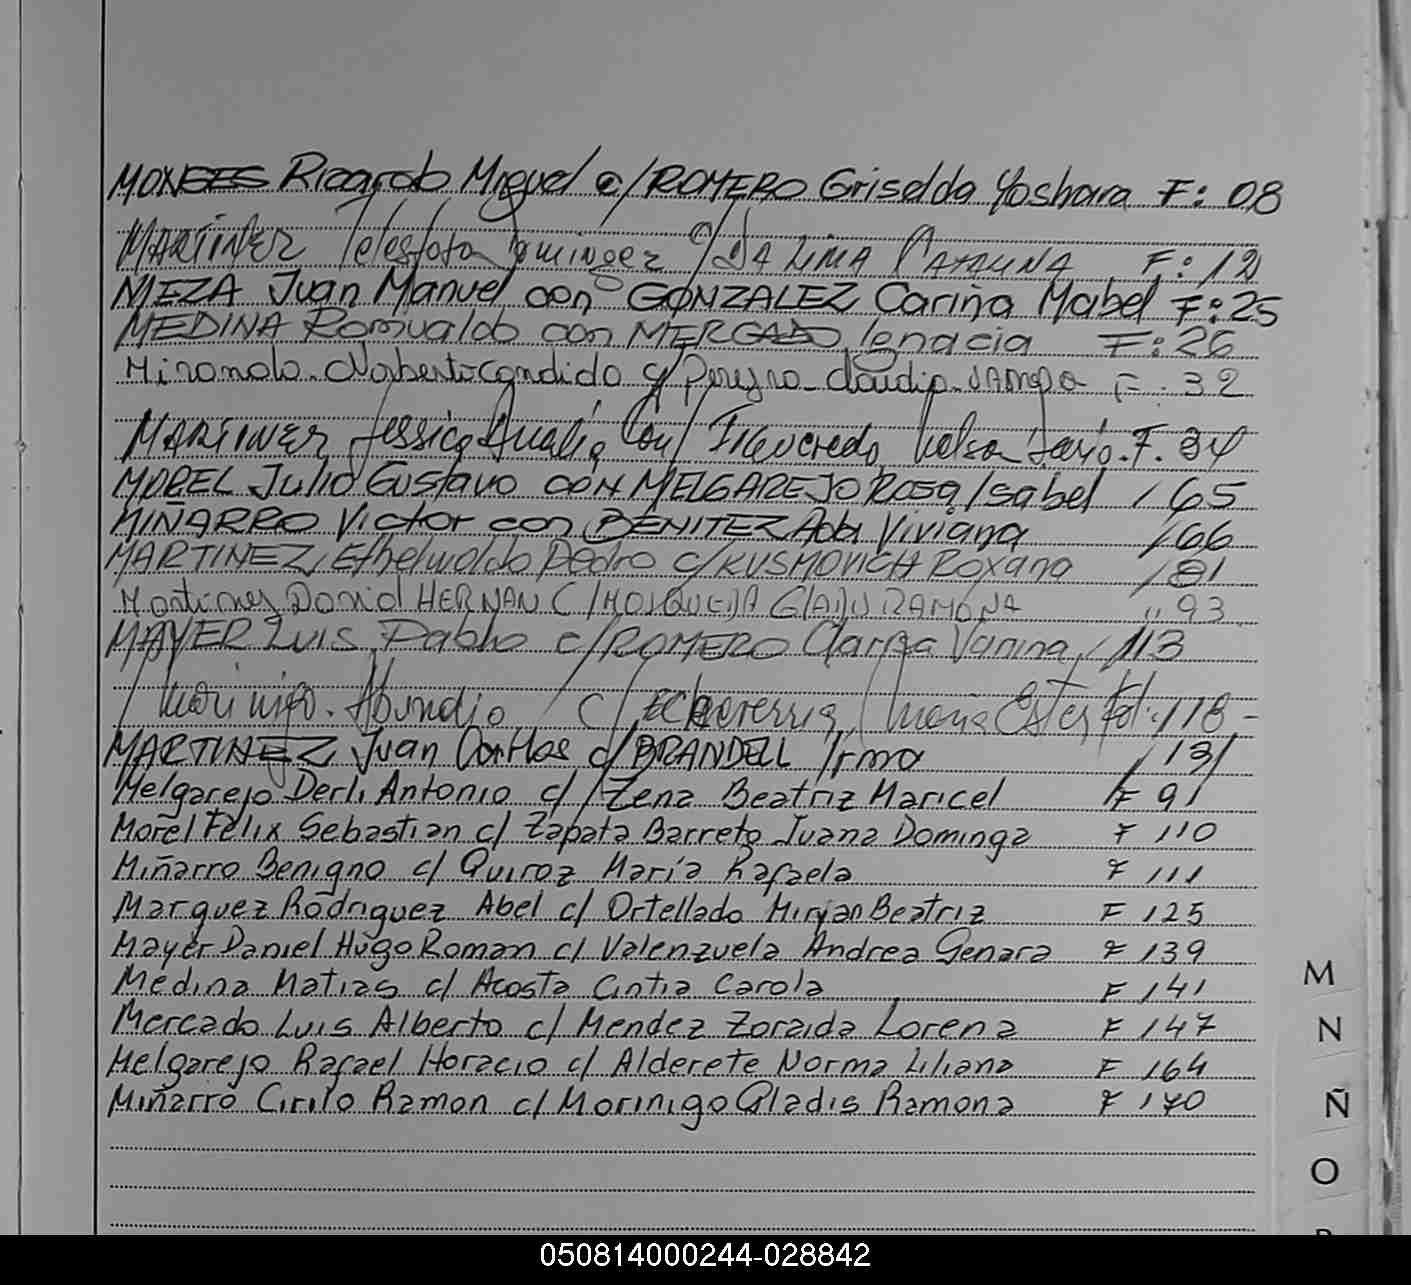 MONGES Ricardo Miguel c/ ROMERO Griselda Yoshara F: 08
MARTINEZ Telesforo Dominguez c/ DA LIMA CATALINA F: 12
MEZA Juan Manuel con GONZALEZ Cariña Mabel F: 25
MEDINA Romualdo con MERCADO Ignacia F: 26
Miranda Norberto Candido c/ Pereyra Claudia F. 32
MARTINEZ Jessica Analia con Figueredo Nelson Dario. F. 34
MOREL Julio Gustavo CON MELGAREJO Rosa Isabel / 65
MIÑARRO Victor con BENITEZ Ada Viviana / 66
MARTINEZ Ethelwoldo Pedro c/ KUSMOVICH Roxana / 81
Martinez David HERNAN C/ MOSQUEDA GLADIS RAMONA " 93
MAYER Luis Pablo c/ ROMERO Clarisa Vanina / 113
Morinigo. Abundio c/ Echeverria, Maria Ester Fol: 118 -
MARTINEZ Juan Carlos c/ BRANDELL Irma / 131
Melgarejo Derli Antonio c/ Zena Beatriz Maricel F 91
Morel Felix Sebastian c/ Zapata Barreto Juana Dominga F 110
Miñarro Benigno c/ Quiroz María Rafaela F 111
Marquez Rodriguez Abel c/ Ortellado Mirian Beatriz F 125
Mayer Daniel Hugo Roman c/ Valenzuela Andrea Genara F 139
Medina Matias c/ Acosta Cintia Carola F 141
Mercado Luis Alberto c/ Mendez Zoraida Lorena F 147
Melgarejo Rafael Horacio c/ Alderete Norma Liliana F 164
Miñarro Cirilo Ramon c/ Morinigo Gladis Ramona F 170
M
N
Ñ
O
050814000244-028842